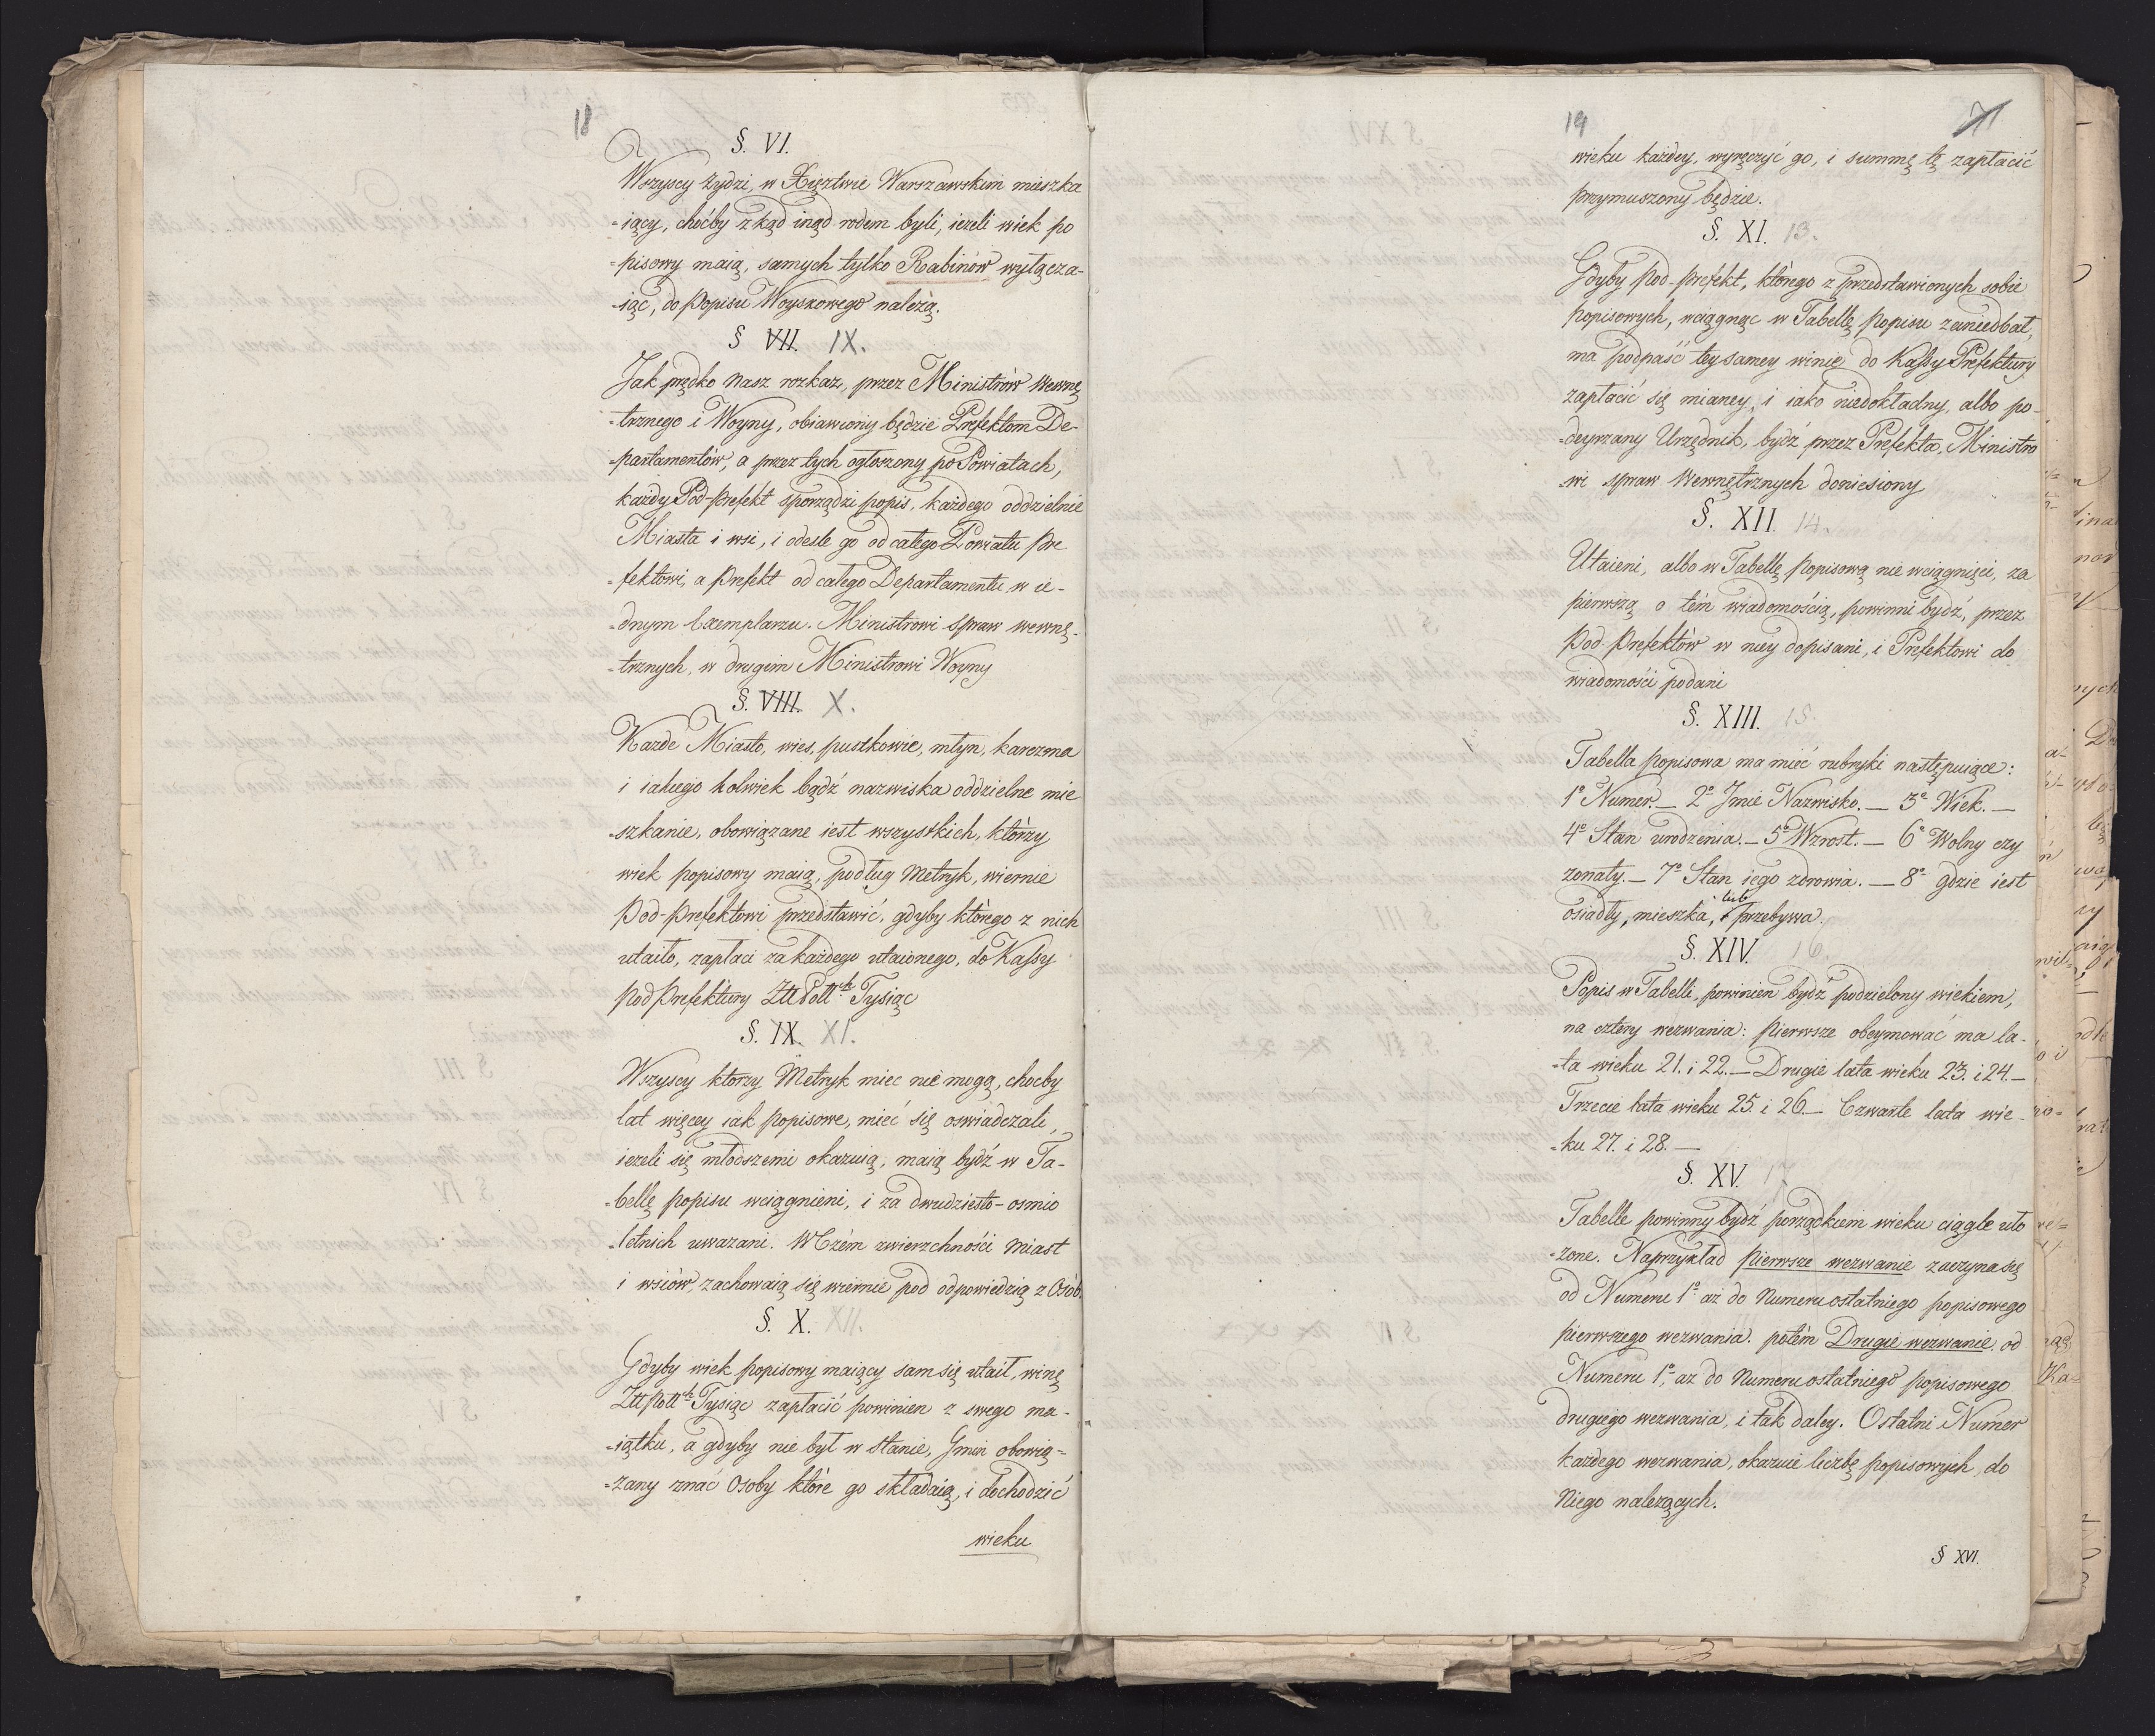 18
§. VI.
Wszyscy Żydzi, w Xięztwie Warszawskim mieszka
=iący, choćby zkąd inąd rodem byli, ieżeli wiek po
=pisowy maią, samych tylko Rabinów wyłącza-
=iąc, do popisu Woyskowego należą.
§ VII. IX.
Jak prędko Nasz rozkaz, przez Ministrów Wewnę
=trznego i Woyny, obiawiony będzie Prefektom De-
=partamentów, a przez tych ogłoszony po Powiatach,
każdy Pod-Prefekt sporządzi popis, każdego oddzielnie
Miasta i wsi, i odesle go od całego Powiatu Pre
=fektowi, a Prefekt od całego Departamentu w ie-
=dnym Exemplarzu. Ministrowi spraw wewnę-
=trznych, w drugim Ministrowi Woyny
§. VIII. X.
Każde Miasto, wies, pustkowie, młyn, karczma
i iakiego kolwiek bądź nazwiska oddzielne mie
=szkanie, obowiązane iest wszystkich, którzy
wiek popisowy maią, podług Metryk, wiernie
Pod-Prefektowi przedstawić, gdyby którego z nich
utaiło, zapłaci za każdego utaionego, do Kassy
Pod Prefektury Ztt Pott.ch Tysiąc
§. IX. XI.
Wszyscy ktorzy Metryk miec nie mogą, chocby
lat więcey iak popisowe, mieć się oswiadczali,
ieżeli się młodszemi okazuią, maią bydź w Ta-
=bellę popisu wciągnieni, i za dwudziesto-osmio
=letnich uwazani. W Czém zwierzchności Miast
i wsiów, zachowaią się wiernie pod odpowiedzią z Osób.
§. X. XII.
Gdyby wiek popisowy maiący sam się utaił, winę
Ztt Pott.ch Tysiąc zapłacić powinien z swego ma-
=iątku, a gdyby nie był w stanie, Gmin obowią=
=zany znać Osoby które go składaią, i dochodzić
wieku
19
71
wieku każdey, wyręczyć go, i summę tę zapłacić
przymuszony będzie.
§. XI. 13.
Gdyby Pod-Prefekt, którego z przedstawionych sobie
popisowych, wciągnąc w Tabellę popisu zaniedbał,
ma podpaść teysamey winie do Kassy Prefektury
zapłacić się mianey, i iako niedokładny, albo po-
=deyrzany Urzędnik, bydź przez Prefekta, Ministro
=wi spraw Wewnętrznych doniesiony
§. XII. 14.
Utaieni, albo w Tabellę popisową nie wciągnięci, za
pierwszą o tém wiadomością, powinni bydź, przez
Pod. Prefektów w niey dopisani, i Prefektowi do
wiadomości podani
§. XIII. 15.
Tabella popisowa ma mieć rubryki następuiące:
1º Numer. — 2º Jmie Nazwisko. — 3º Wiek. —
4º Stan urodzenia. — 5º Wzrost. — 6º Wolny czy
zonaty. — 7º Stan iego zdrowia. — 8º gdzie iest
osiadły, mieszka, lub przebywa.
§. XIV. 16.
Popis w Tabelli, powinien bydź podzielony wiekiem,
na cztery wezwania: pierwsze obeymować ma la-
=ta wieku 21. i 22. — Drugie lata wieku 23. i 24. —
Trzecie lata wieku 25. i 26. — Czwarte lata wie-
=ku 27. i 28. —
§. XV. 17
Tabelle powinny bydź porządkiem wieku ciągle uło
=zone. Naprzykład pierwsze wezwanie zaczyna się
od Numeru 1º aż do Numeru ostatniego popisowego
pierwszego wezwania. potém Drugie wezwanie. od
Numeru 1º, aż do Numeru ostatniego popisowego
drugiego wezwania, i tak daley. Ostatni Numer
każdego wezwania, okazuie liczbę popisowych, do
Niego nalezących.
§ XVI.